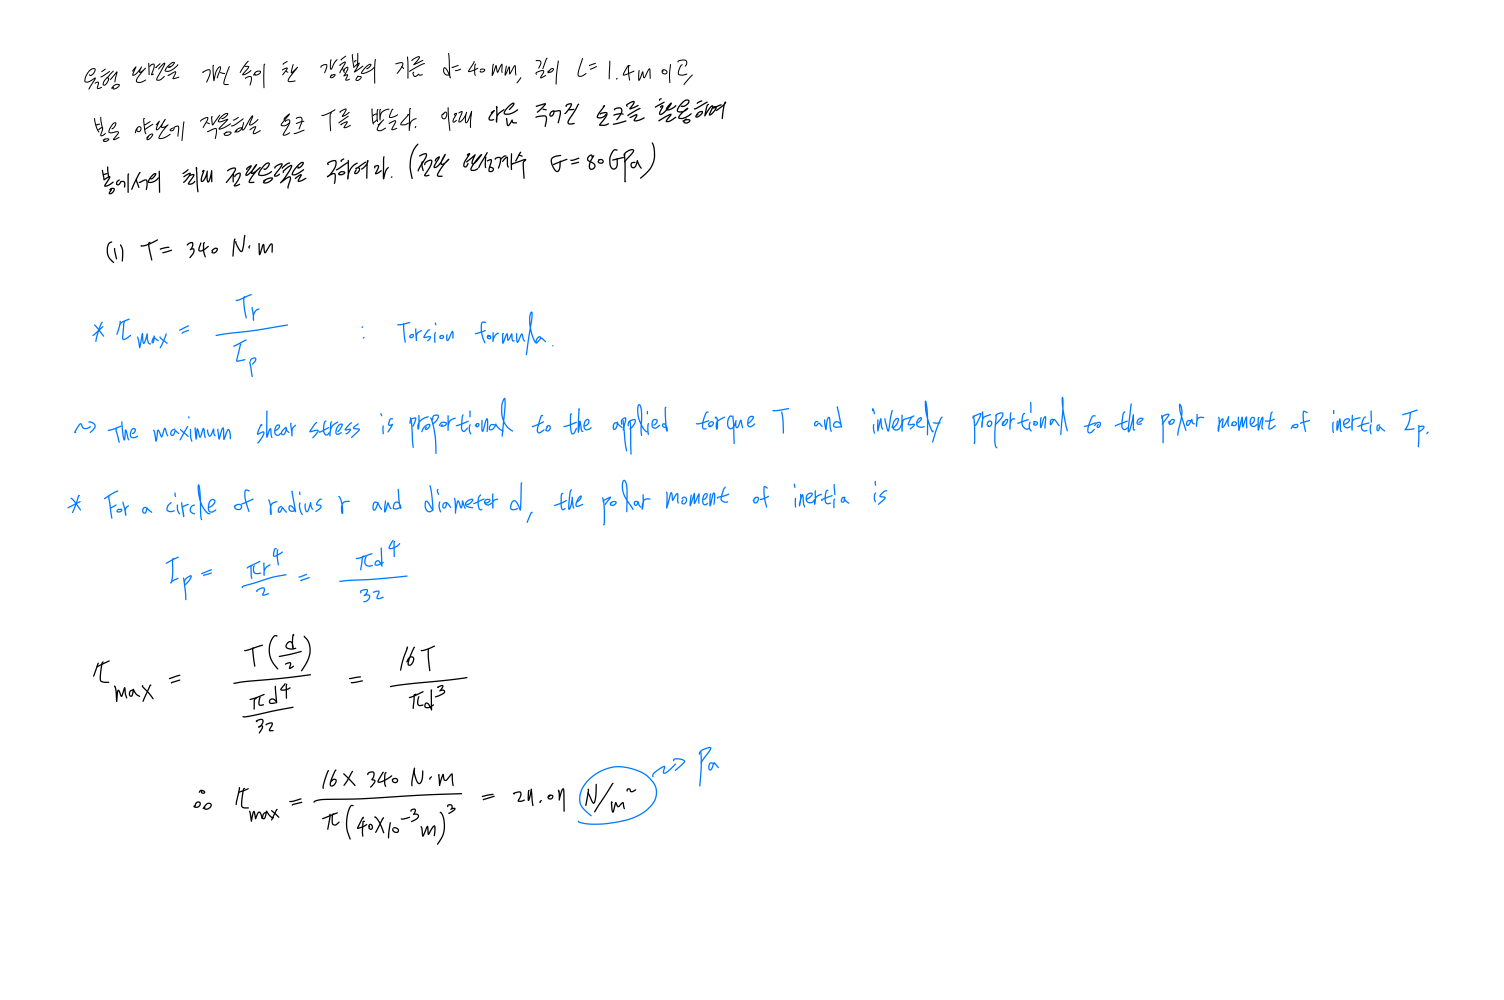 원형 단면을 가진 속이 찬 강철봉의 지름 d=40mm, 길이 L=1.4m 이고,
봉은 양단에 작용하는 토크 T를 받는다. 이때 다음 주어진 토크를 활용하여
봉에서의 최대 전단응력을 구하여라. (전단 탄성계수 G=80GPa)
(1) T= 340 N·m
* τmax = Tr / Ip : Torsion formula.
~> The maximum shear stress is proportional to the applied torque T and inversely proportional to the polar moment of inertia Ip.
* For a circle of radius r and diameter d, the polar moment of inertia is
Ip = πr⁴/2 = πd⁴/32
τmax = T(d/2) / (πd⁴/32) = 16T / πd³
∴ τmax = 16×340 N·m / π(40×10⁻³m)³ = 27.07 N/m² ~> Pa